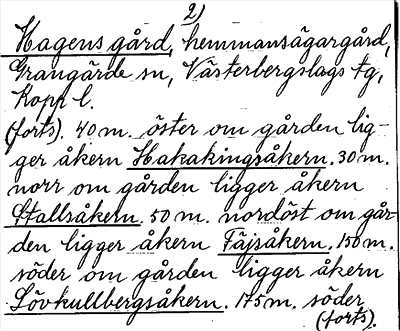 2)
Hagens gård, hemmansägargård,
Grangärde sn, Västerbergslags tg,
Kopp l.
(forts). 40 m. öster om gården lig-
ger åkern Hakakingsåkern. 30 m.
norr om gården ligger åkern
Stallsåkern. 50 m. nordöst om går-
den ligger åkern Fäjsåkern. 150 m.
söder om gården ligger åkern
Lövkullbergsåkern. 175 m. söder
(forts).